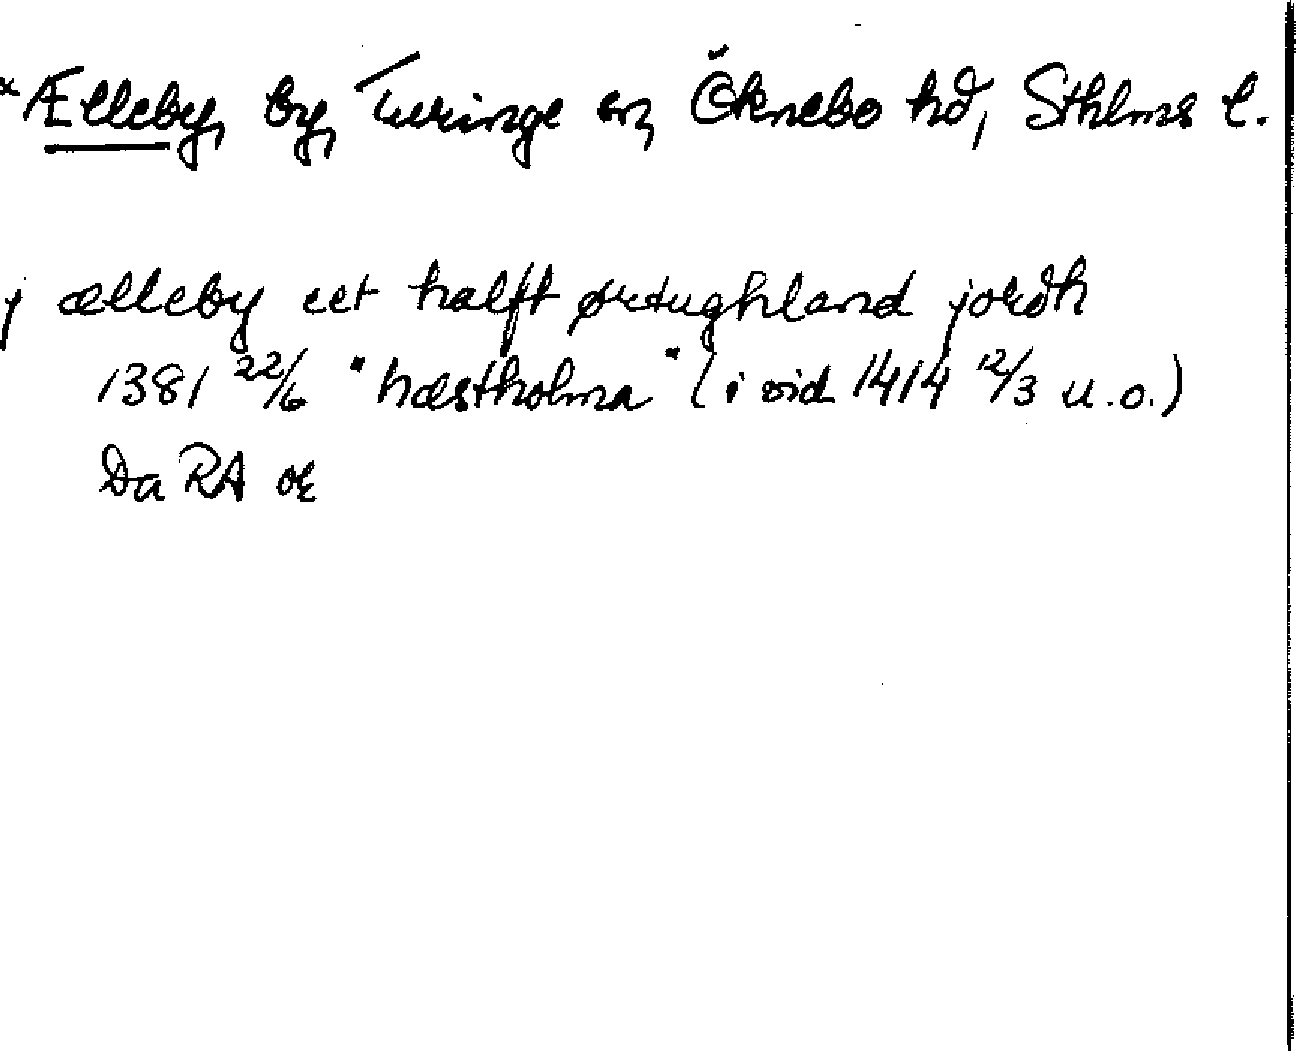 *Ælleby, by, Turinge sn, Öknebo hd, Sthlms l.
j ælleby eet halft ørtughland jordh
1381 22/6 "hæstholma" (i vid 1414 12/3 u.o.)
Da RA or